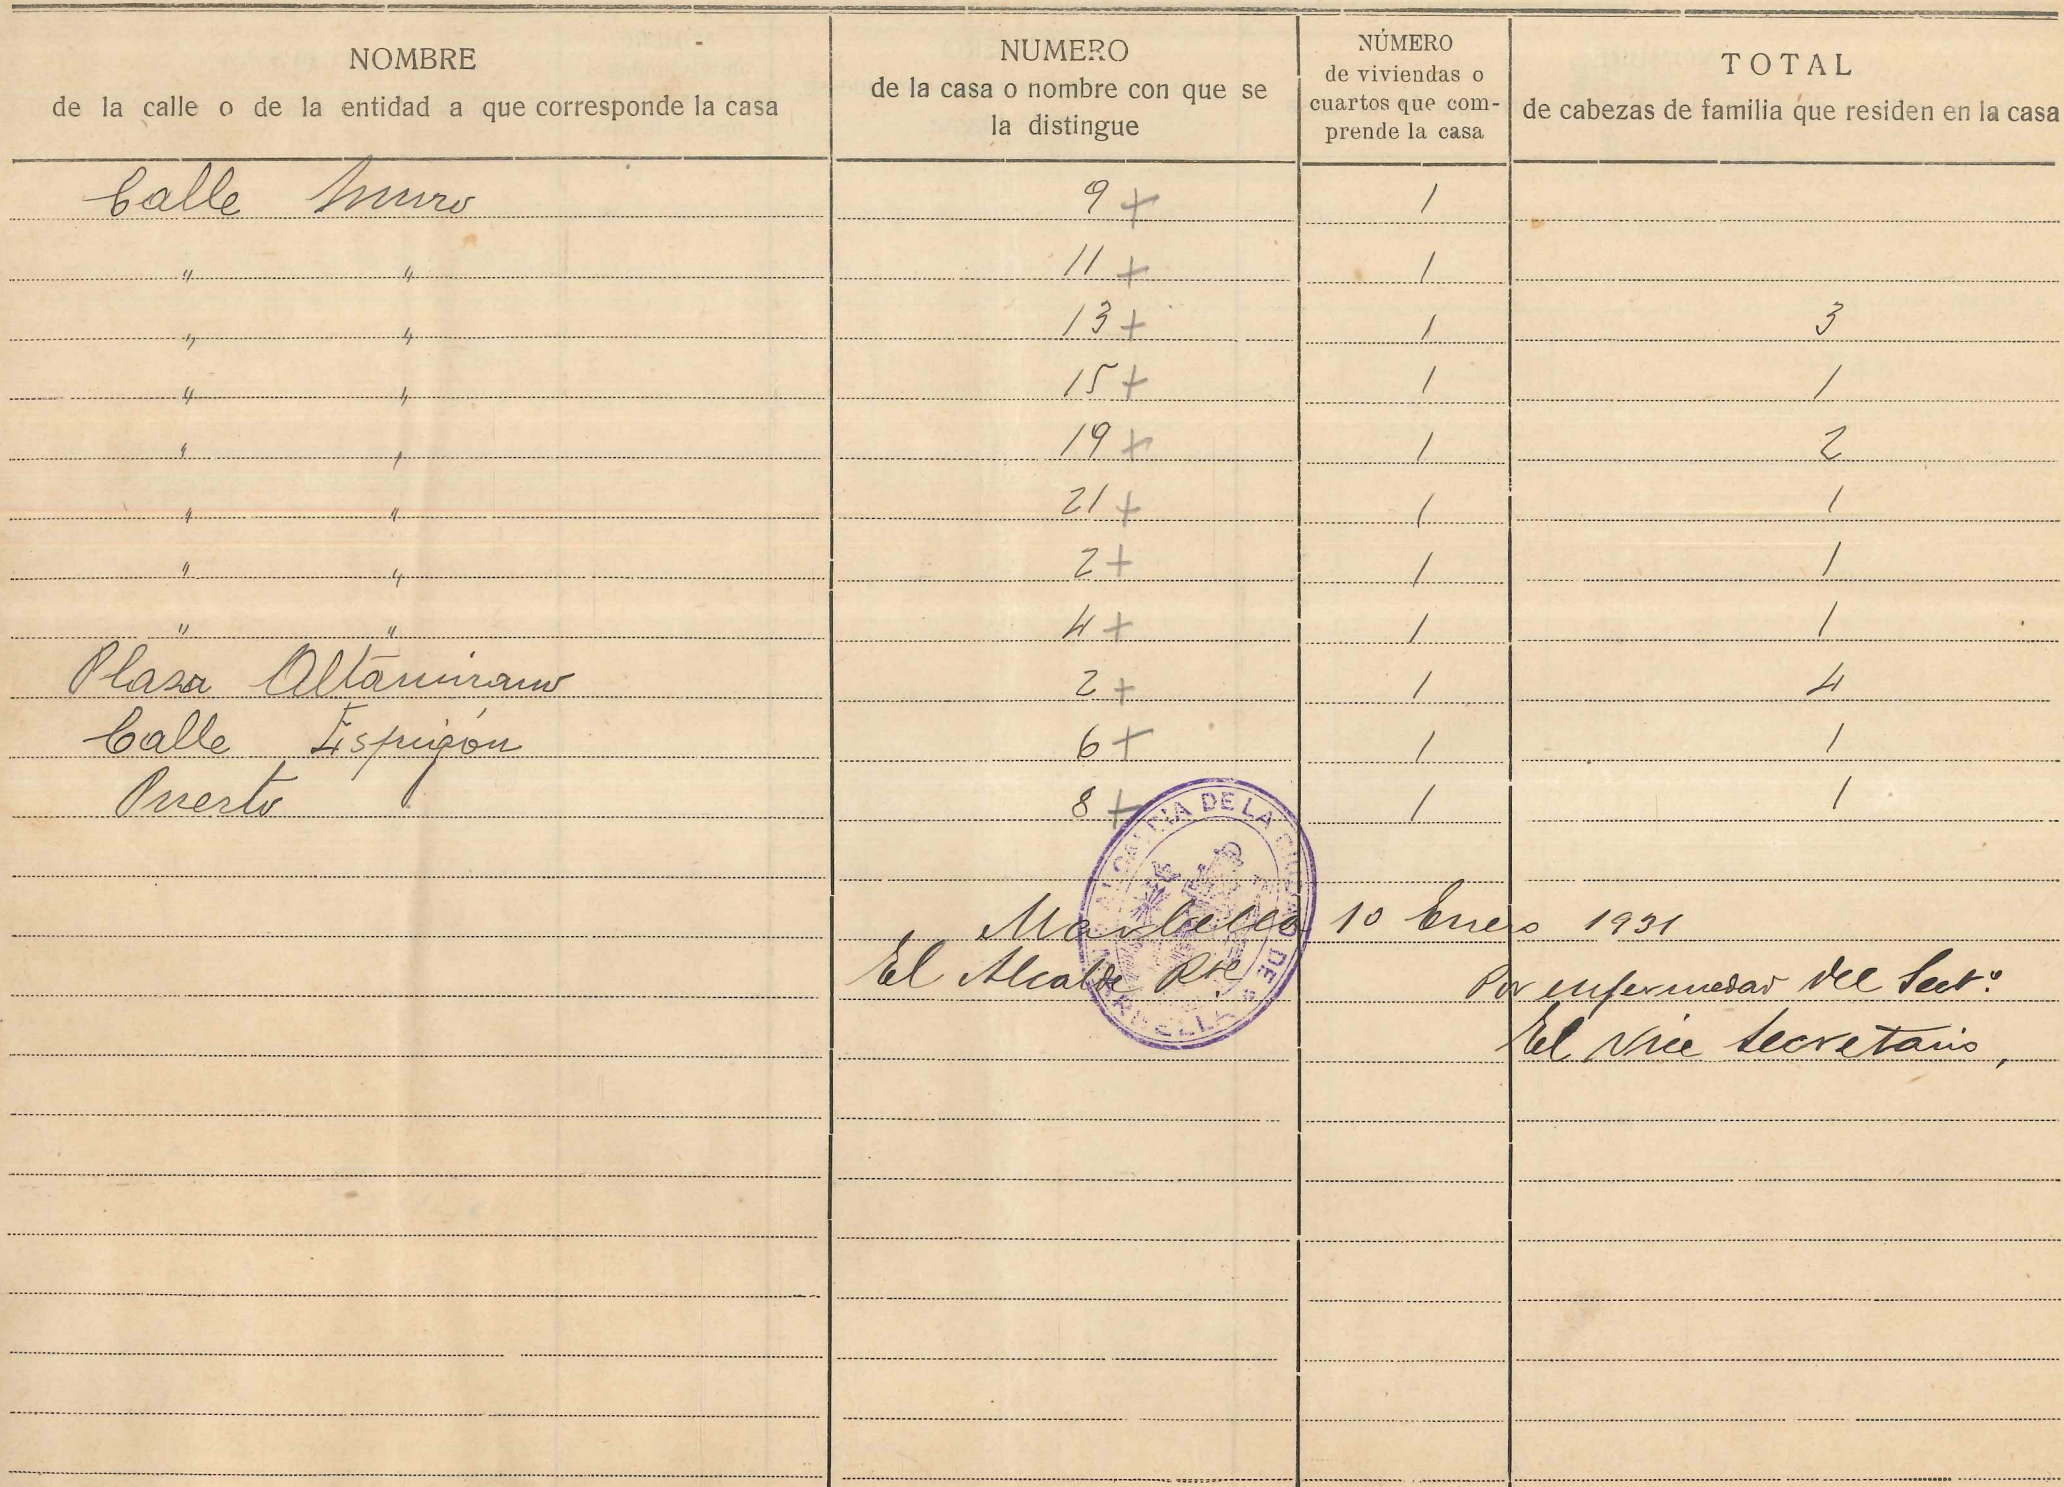 NOMBRE
de la calle o de la entidad a que corresponde la casa
NUMERO
de la casa o nombre con que se
la distingue
NÚMERO
de viviendas o
cuartos que com-
prende la casa
TOTAL
de cabezas de familia que residen en la casa
Calle Muro 9 + 1
" " 11 + 1
" " 13 + 1 3
" " 15 + 1 1
" " 19 + 1 2
" " 21 + 1 1
" " 2 + 1 1
" " 4 + 1 1
Plaza Altamirano 2 + 1 4
Calle Espigón 6 + 1 1
Puerto 8 + 1 1
ALCALDIA DE LA CIUDAD DE MARBELLA
Marbella 10 Enero 1931
El Alcalde Pte
Por enfermedad del Sectº
El Vice Secretario,